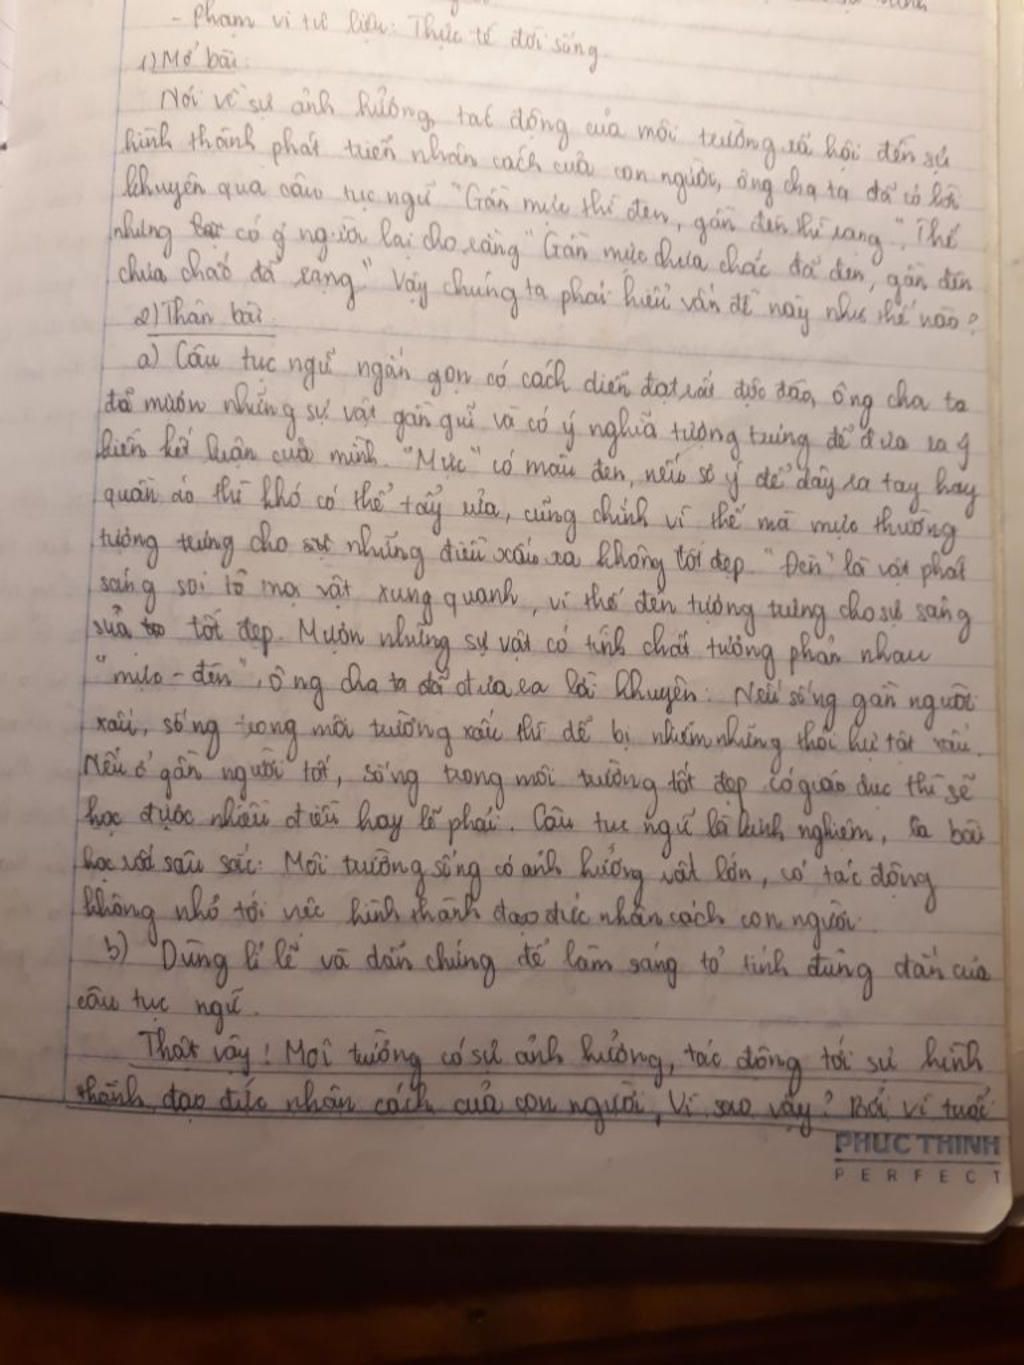 - Phạm vi tư liệu: Thực tế đời sống.
1) Mở bài:
Nói về sự ảnh hưởng, tác động của môi trường xã hội đến sự
hình thành phát triển nhân cách của con người, ông cha ta đã có lời
khuyên qua câu tục ngữ "Gần mực thì đen, gần đèn thì rạng". Thế
nhưng có ý người lại cho rằng "Gần mực chưa chắc đã đen, gần đèn
chưa chắc đã rạng." Vậy chúng ta phải hiểu vấn đề này như thế nào?
2) Thân bài:
a) Câu tục ngữ ngắn gọn có cách diễn đạt rất độc đáo, ông cha ta
đã mượn những sự vật gần gũi và có ý nghĩa tượng trưng để đưa ra ý
kiến kết luận của mình. "Mực" có màu đen, nếu sơ ý để dây ra tay hay
quần áo thì khó có thể tẩy rửa, cũng chính vì thế mà mực thường
tượng trưng cho những điều xấu xa không tốt đẹp. "Đèn" là vật phát
sáng soi tỏ mọi vật xung quanh, vì thế đèn tượng trưng cho sự sáng
sủa tốt đẹp. Mượn những sự vật có tính chất tương phản nhau
"mực - đèn", ông cha ta đã đưa ra lời khuyên: Nếu sống gần người
xấu, sống trong môi trường xấu thì dễ bị nhiễm những thói hư tật xấu.
Nếu ở gần người tốt, sống trong môi trường tốt đẹp có giáo dục thì sẽ
học được nhiều điều hay lẽ phải. Câu tục ngữ là kinh nghiệm, là bài
học rất sâu sắc: Môi trường sống có ảnh hưởng rất lớn, có tác động
không nhỏ tới việc hình thành đạo đức nhân cách con người.
b) Dùng lí lẽ và dẫn chứng để làm sáng tỏ tính đúng đắn của
câu tục ngữ.
Thật vậy! Môi trường có sự ảnh hưởng, tác động tới sự hình
thành đạo đức nhân cách của con người, Vì sao vậy? Bởi vì tuổi
PHUC THINH
PERFECT